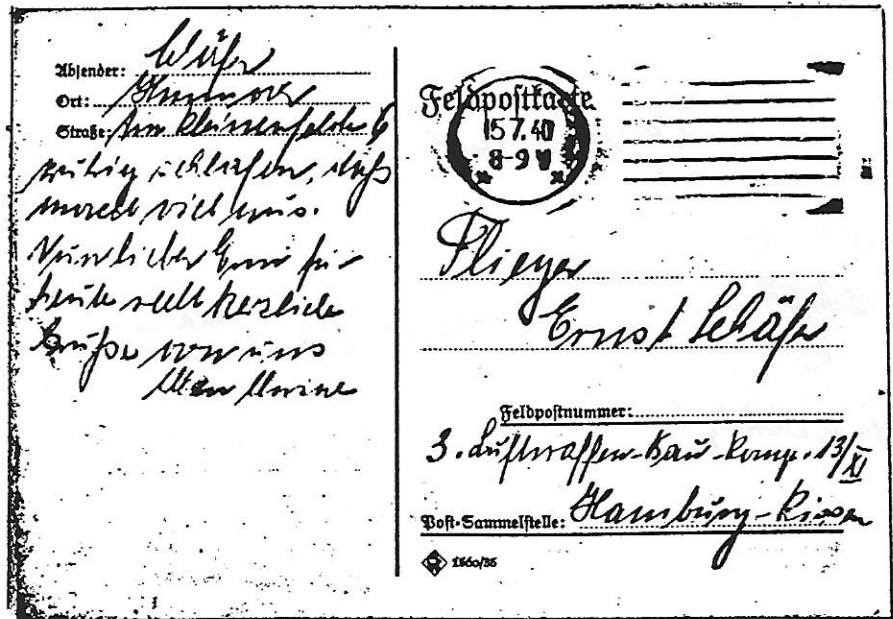 Absender:
Ort: Hannover
Straße: Am Kleinenfelde 6
ruhig schlafen, daß
macht viel aus.
Nun lieber für
heute recht herzliche
Grüße von uns
allen
Feldpostkarte
15 7. 40
8-9 V
Flieger
Ernst Schäfer
Feldpostnummer:
3. Luftwaffen-Bau-Komp. 13/XI
Post-Sammelstelle: Hamburg-Rissen